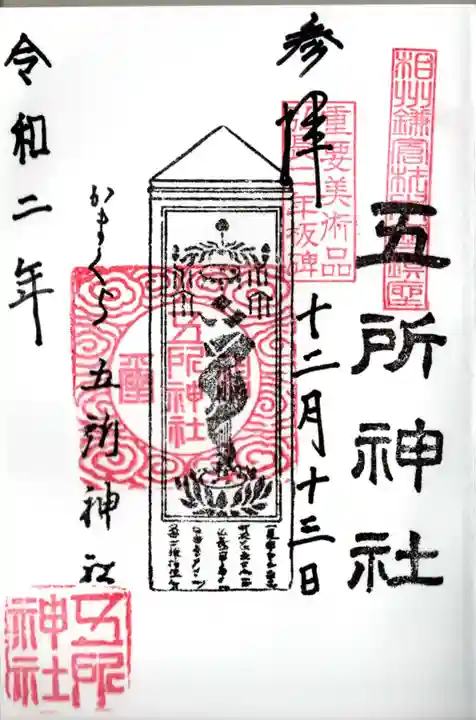 相州鎌倉材木座鎮座
五所神社
参拝
重要美術品
弘長二年板碑
十二月十三日
五所神社
かまくら五所神社
令和二年
五所神社